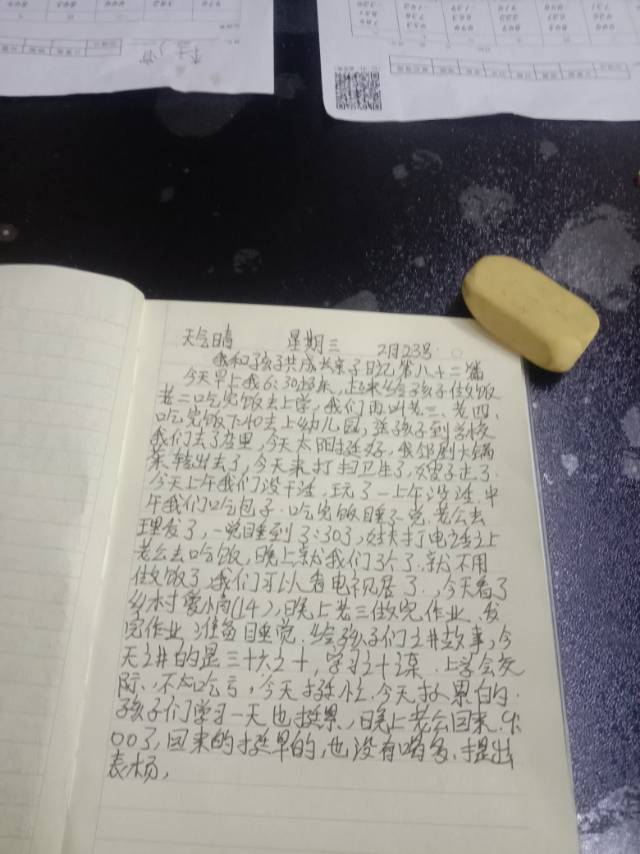 天气晴 星期三 2月23号
我和孩子共成长亲子日记第八十二篇
今天早上我6:30起来,起来给孩子做饭
老二吃完饭去上学,我们再叫老三、老四、
吃完饭7:40去上幼儿园,送孩子到学校
我们去了店里,今天太阳挺好,我邻居大锅
菜转出去了,今天来打扫卫生了,
今天上午我们没干活,玩了一上午没活.中
午我们吃包子.吃完饭睡了觉.老公去
理发了,一觉睡到了3:30了,打电话让
老公去吃饭,晚上就我们3个了.就不用
做饭了,我们可以看电视居了.,今天看了
乡村爱情(14),晚上老三做完作业.发
完作业.准备睡觉.给孩子们讲故事,今
天讲的是三十六计,学习之十课.上学会交
际、不怕吃亏,今天挺忙.今天挺累的.
孩子们学习一天也挺累,晚上老公回来.9:
00了,回来的挺早的,也没有喝多、提出
表杨,